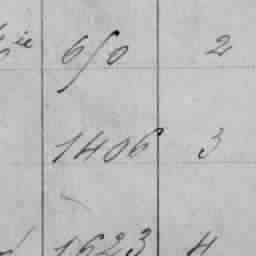 650 2
1406 3
1623 4